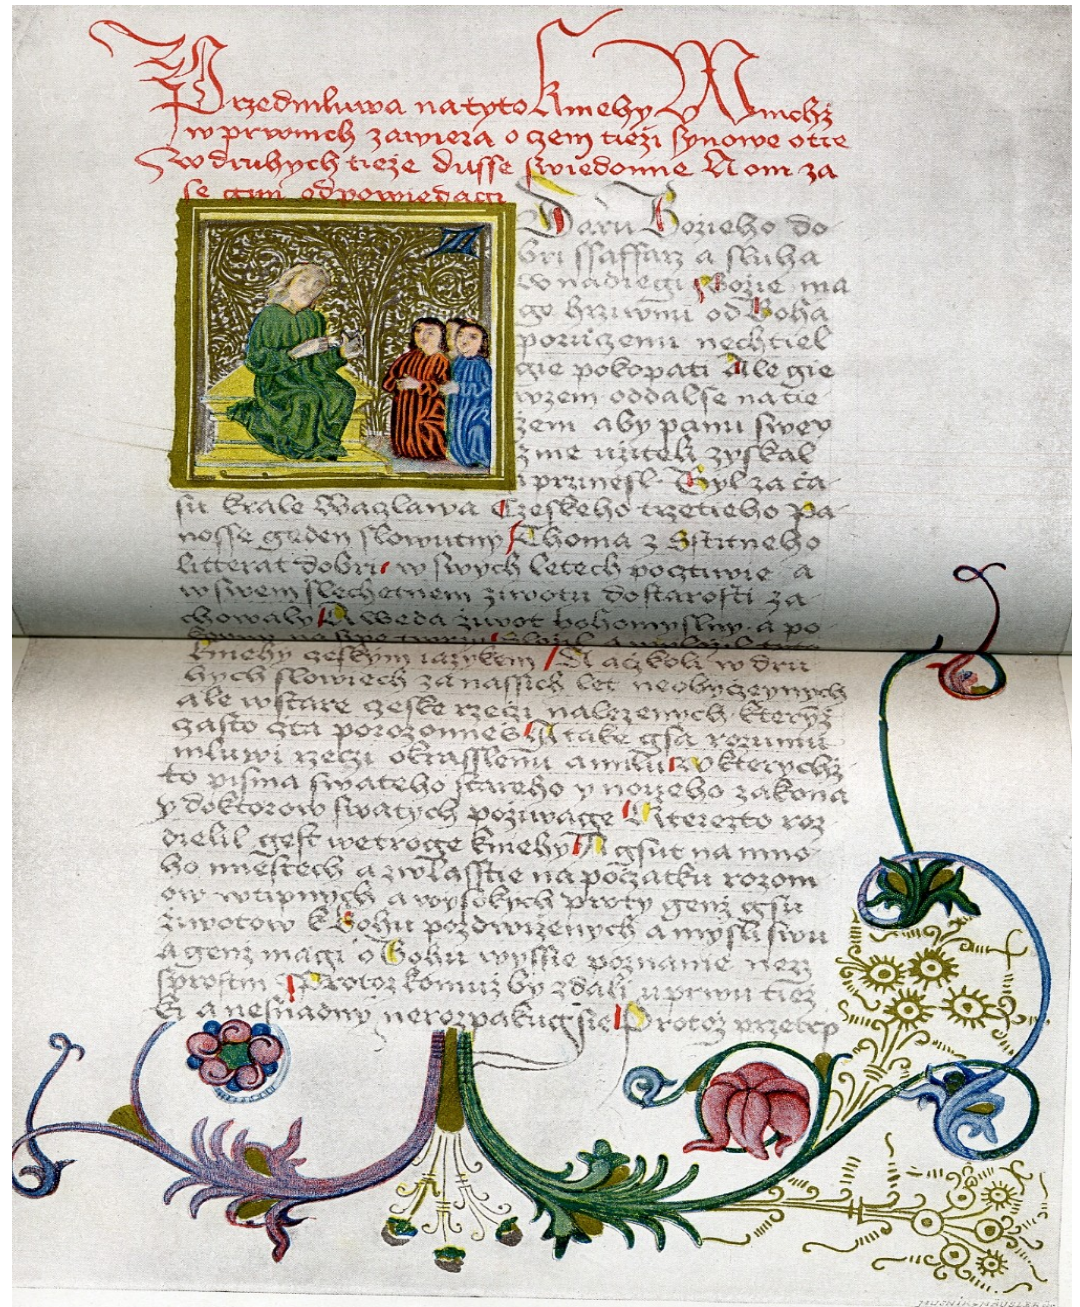 Przedmluwa na tyto kniehy W nichž
w prwnich zawiera o czem tiezi synowe otce
w druhych tieze dusse swiedomie A on za
se gim odpowiedagi
Daru Bozieho do
bri ssaffarz a sluha
w nadiegi Bozie ma
ge hrziwnu od Boha
poruczenu nechtiel
gie pokopati Ale gie
wzem oddalse na tie
zem aby panu swey
zme uzitek zyskal
a prznesl Byl za ča
su krale Waczlawa Czeskeho trzetieho pa
nosse geden slowutny Thoma z Sstitneho
litterat dobri w swych letech pocztiwie a
w swem slechetnem ziwotu do starosti za
chowaly A weda ziwot bohomyslny a po
kniehy czeskym iazykem A aczkoli w dru
hych slowiech za nassich let neobyczeynych
ale w stare czeske rzeczi nalezenych kteryž
czasto čta porozomnes A take gsa rozumu
mluwi rzeczi okrasslenu a milu w kterychž
to pisma swateho stareho y noweho zakona
y doktorow swatych pozuwage Literezto roz
dielil gest we troge kniehy A gsut na mno
ho miestech a zwlasstie na počatku rozom
ow wtipnych a wysokych proty genž gsu
ziwotow k Bohu pozdwiżenych a mysli swu
a genž magi o Bohu wyssie poznanie nezz
sprostni Protož komuž by zdali u prwu tiež
ki a nesnadny nerozpakug sie Protož przetrp